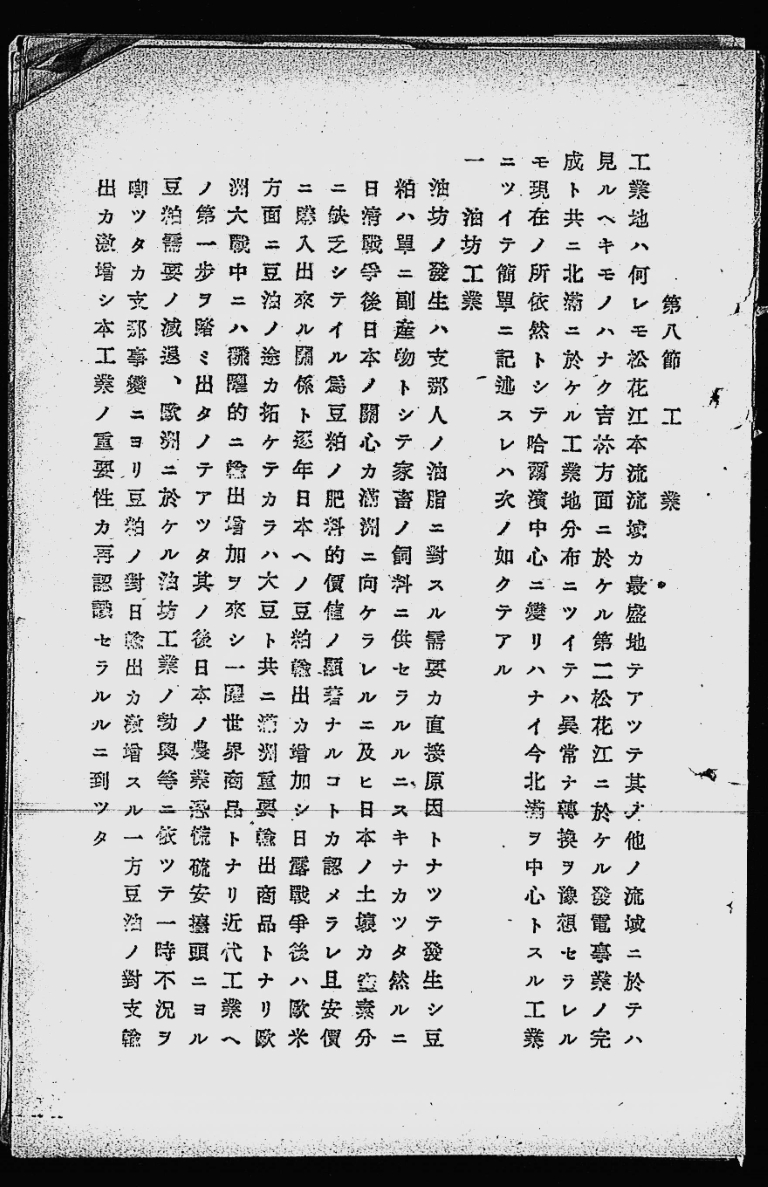 第八節 工 業
工業地ハ何レモ松花江本流流域カ最盛地テアツテ其ノ他ノ流域ニ於テハ
見ルヘキモノハナク吉林方面ニ於ケル第二松花江ニ於ケル發電事業ノ完
成ト共ニ北滿ニ於ケル工業地分布ニツイテハ異常ナ轉換ヲ豫想セラレル
モ現在ノ所依然トシテ哈爾濱中心ニ變リハナイ今北滿ヲ中心トスル工業
ニツイテ簡單ニ記述スレハ次ノ如クテアル
一 油坊工業
油坊ノ發生ハ支那人ノ油脂ニ對スル需要カ直接原因トナツテ發生シ豆
粕ハ單ニ副産物トシテ家畜ノ飼料ニ供セラルルニスキナカツタ然ルニ
日清戰爭後日本ノ關心カ滿洲ニ向ケラレルニ及ヒ日本ノ土壤カ窒素分
ニ缺乏シテイル爲豆粕ノ肥料的價値ノ顯著ナルコトカ認メラレ且安價
ニ購入出來ル關係ト逐年日本ヘノ豆粕輸出カ增加シ日露戰爭後ハ歐米
方面ニ豆油ノ途カ拓ケテカラハ大豆ト共ニ滿洲重要輸出商品トナリ歐
洲大戰中ニハ飛躍的ニ輸出增加ヲ來シ一躍世界商品トナリ近代工業ヘ
ノ第一歩ヲ踏ミ出タノテアツタ其ノ後日本ノ農業恐慌硫安擡頭ニヨル
豆粕需要ノ減退、歐洲ニ於ケル油坊工業ノ勃興等ニ依ツテ一時不況ヲ
喞ツタカ支那事變ニヨリ豆粕ノ對日輸出カ激增スル一方豆油ノ對支輸
出カ激增シ本工業ノ重要性カ再認識セラルルニ到ツタ